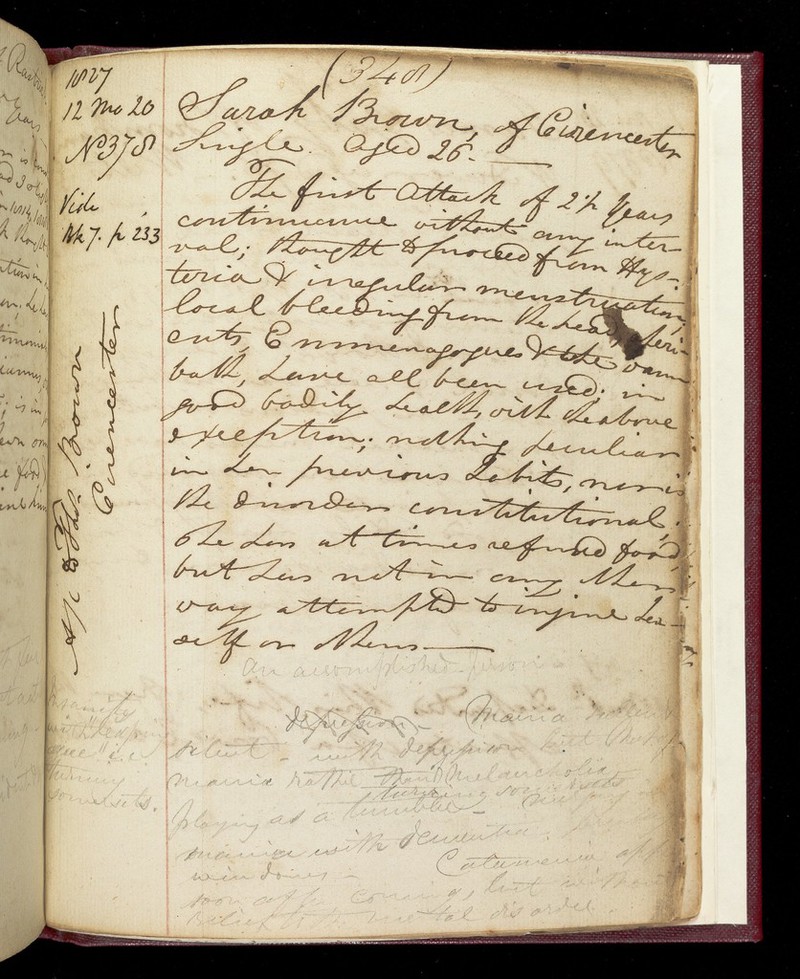 (348)
1827
12 Mo 20
No 378
Vide
Bk 7. p 233
Sarah Brown, of Cirencester
Single. Aged 26.
The first Attack of 2½ Years
continuance without any inter-
val; thought to proceed from Hys-
teria & irregular menstruation,
local bleeding from the head, aperi-
ents, Emmenagogues & the warm
bath, have all been used; in
good bodily health, with the above
exception; nothing peculiar
in her previous habits, nor is
the disorder constitutional.
She has at times refused food,
but has not in any other
way attempted to injure her-
self or others
A/c to Thos. Brown
Cirencester
An accomplished person
depression - Mania
silent - with depression but
mania rather than Melancholia
turning somersets
playing as a tumbler -
mania with dementia.
windows - Catamenia
soon after coming, but without
relief to the mental disorder.
Insanity
with
turning
somersets.